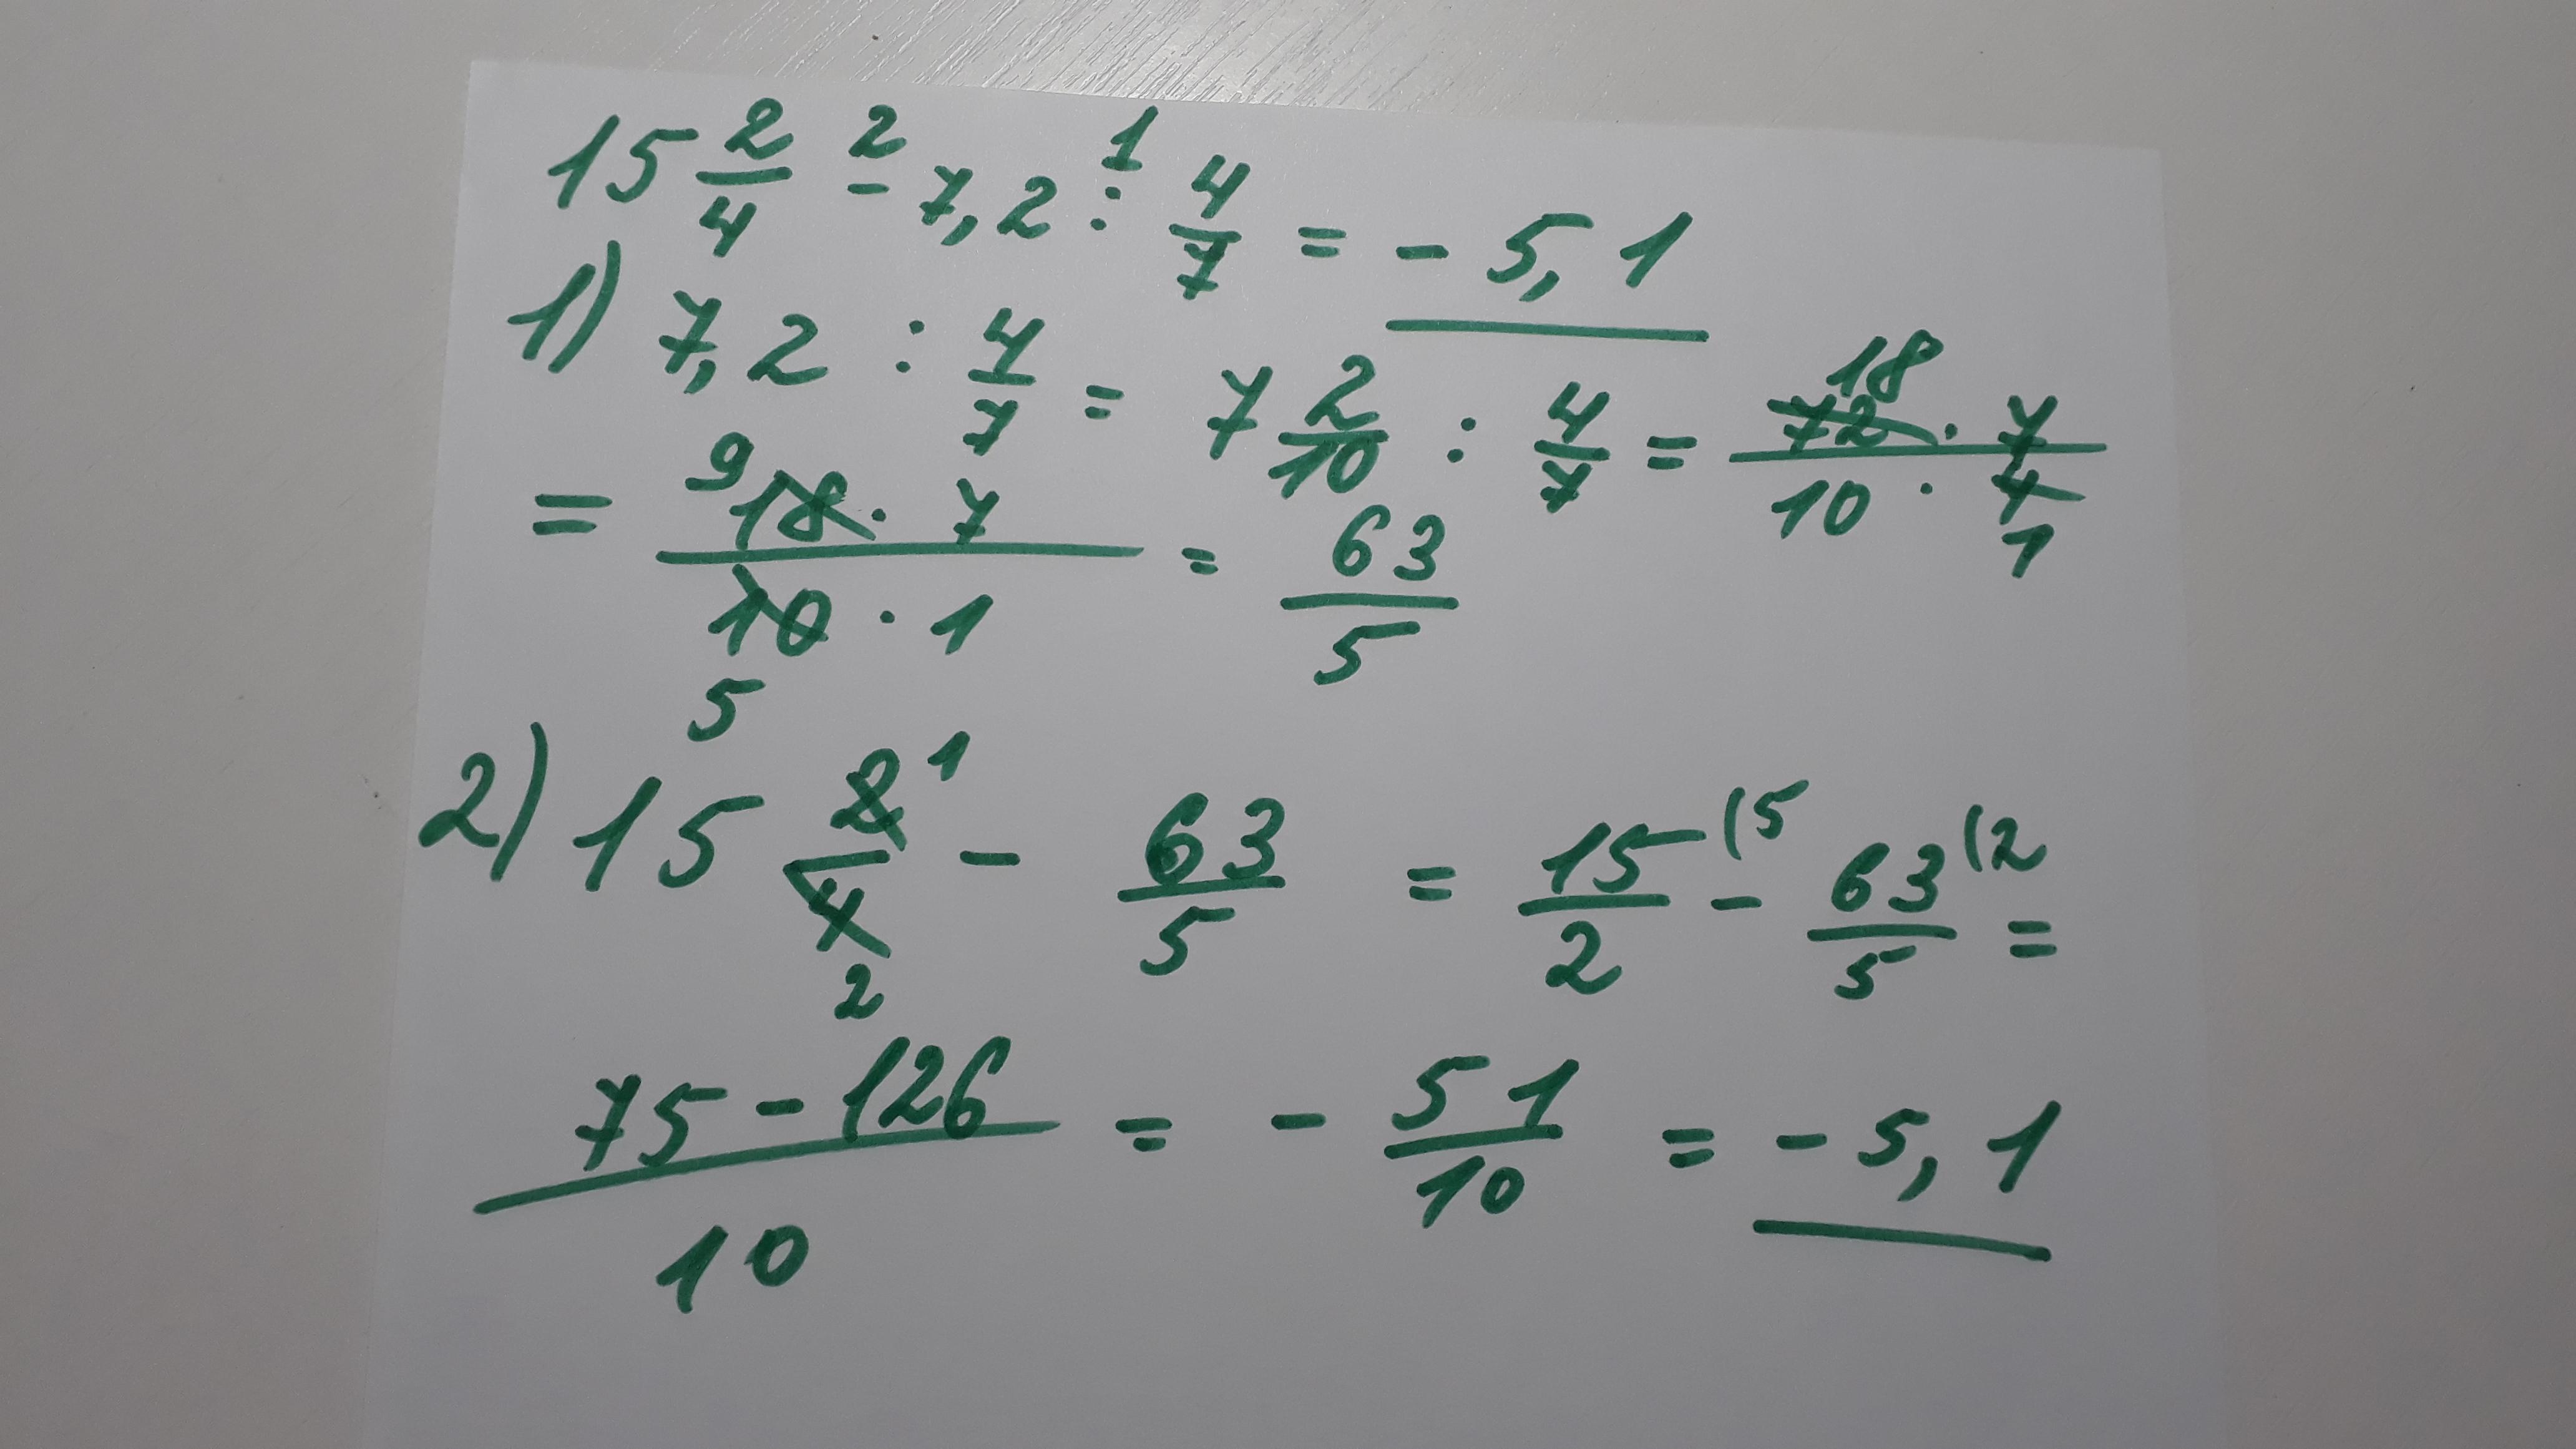 15 2/4 - 7,2 : 4/7 = - 5,1
1) 7,2 : 4/7 = 7 2/10 : 4/7 = 72 · 7 / 10 · 4
= 18 · 7 / 10 · 1 = 63/5
2) 15 2/4 - 63/5 = 15/2 (5 - 63/5 (2 =
75 - 126 / 10 = - 51/10 = - 5,1